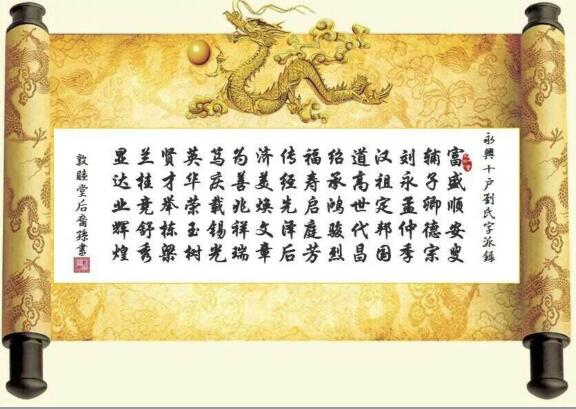 永興十户劉氏字派録
富盛顺安叟
辅子卿德宗
刘永孟仲季
汉祖定邦国
道高世代昌
绍承鸿骏烈
福寿启庭芳
传经先泽后
济美焕文章
为善兆祥瑞
笃庆载锡光
英华荣玉树
贤才举栋梁
兰桂竞舒秀
显达业辉煌
敦睦堂后裔書